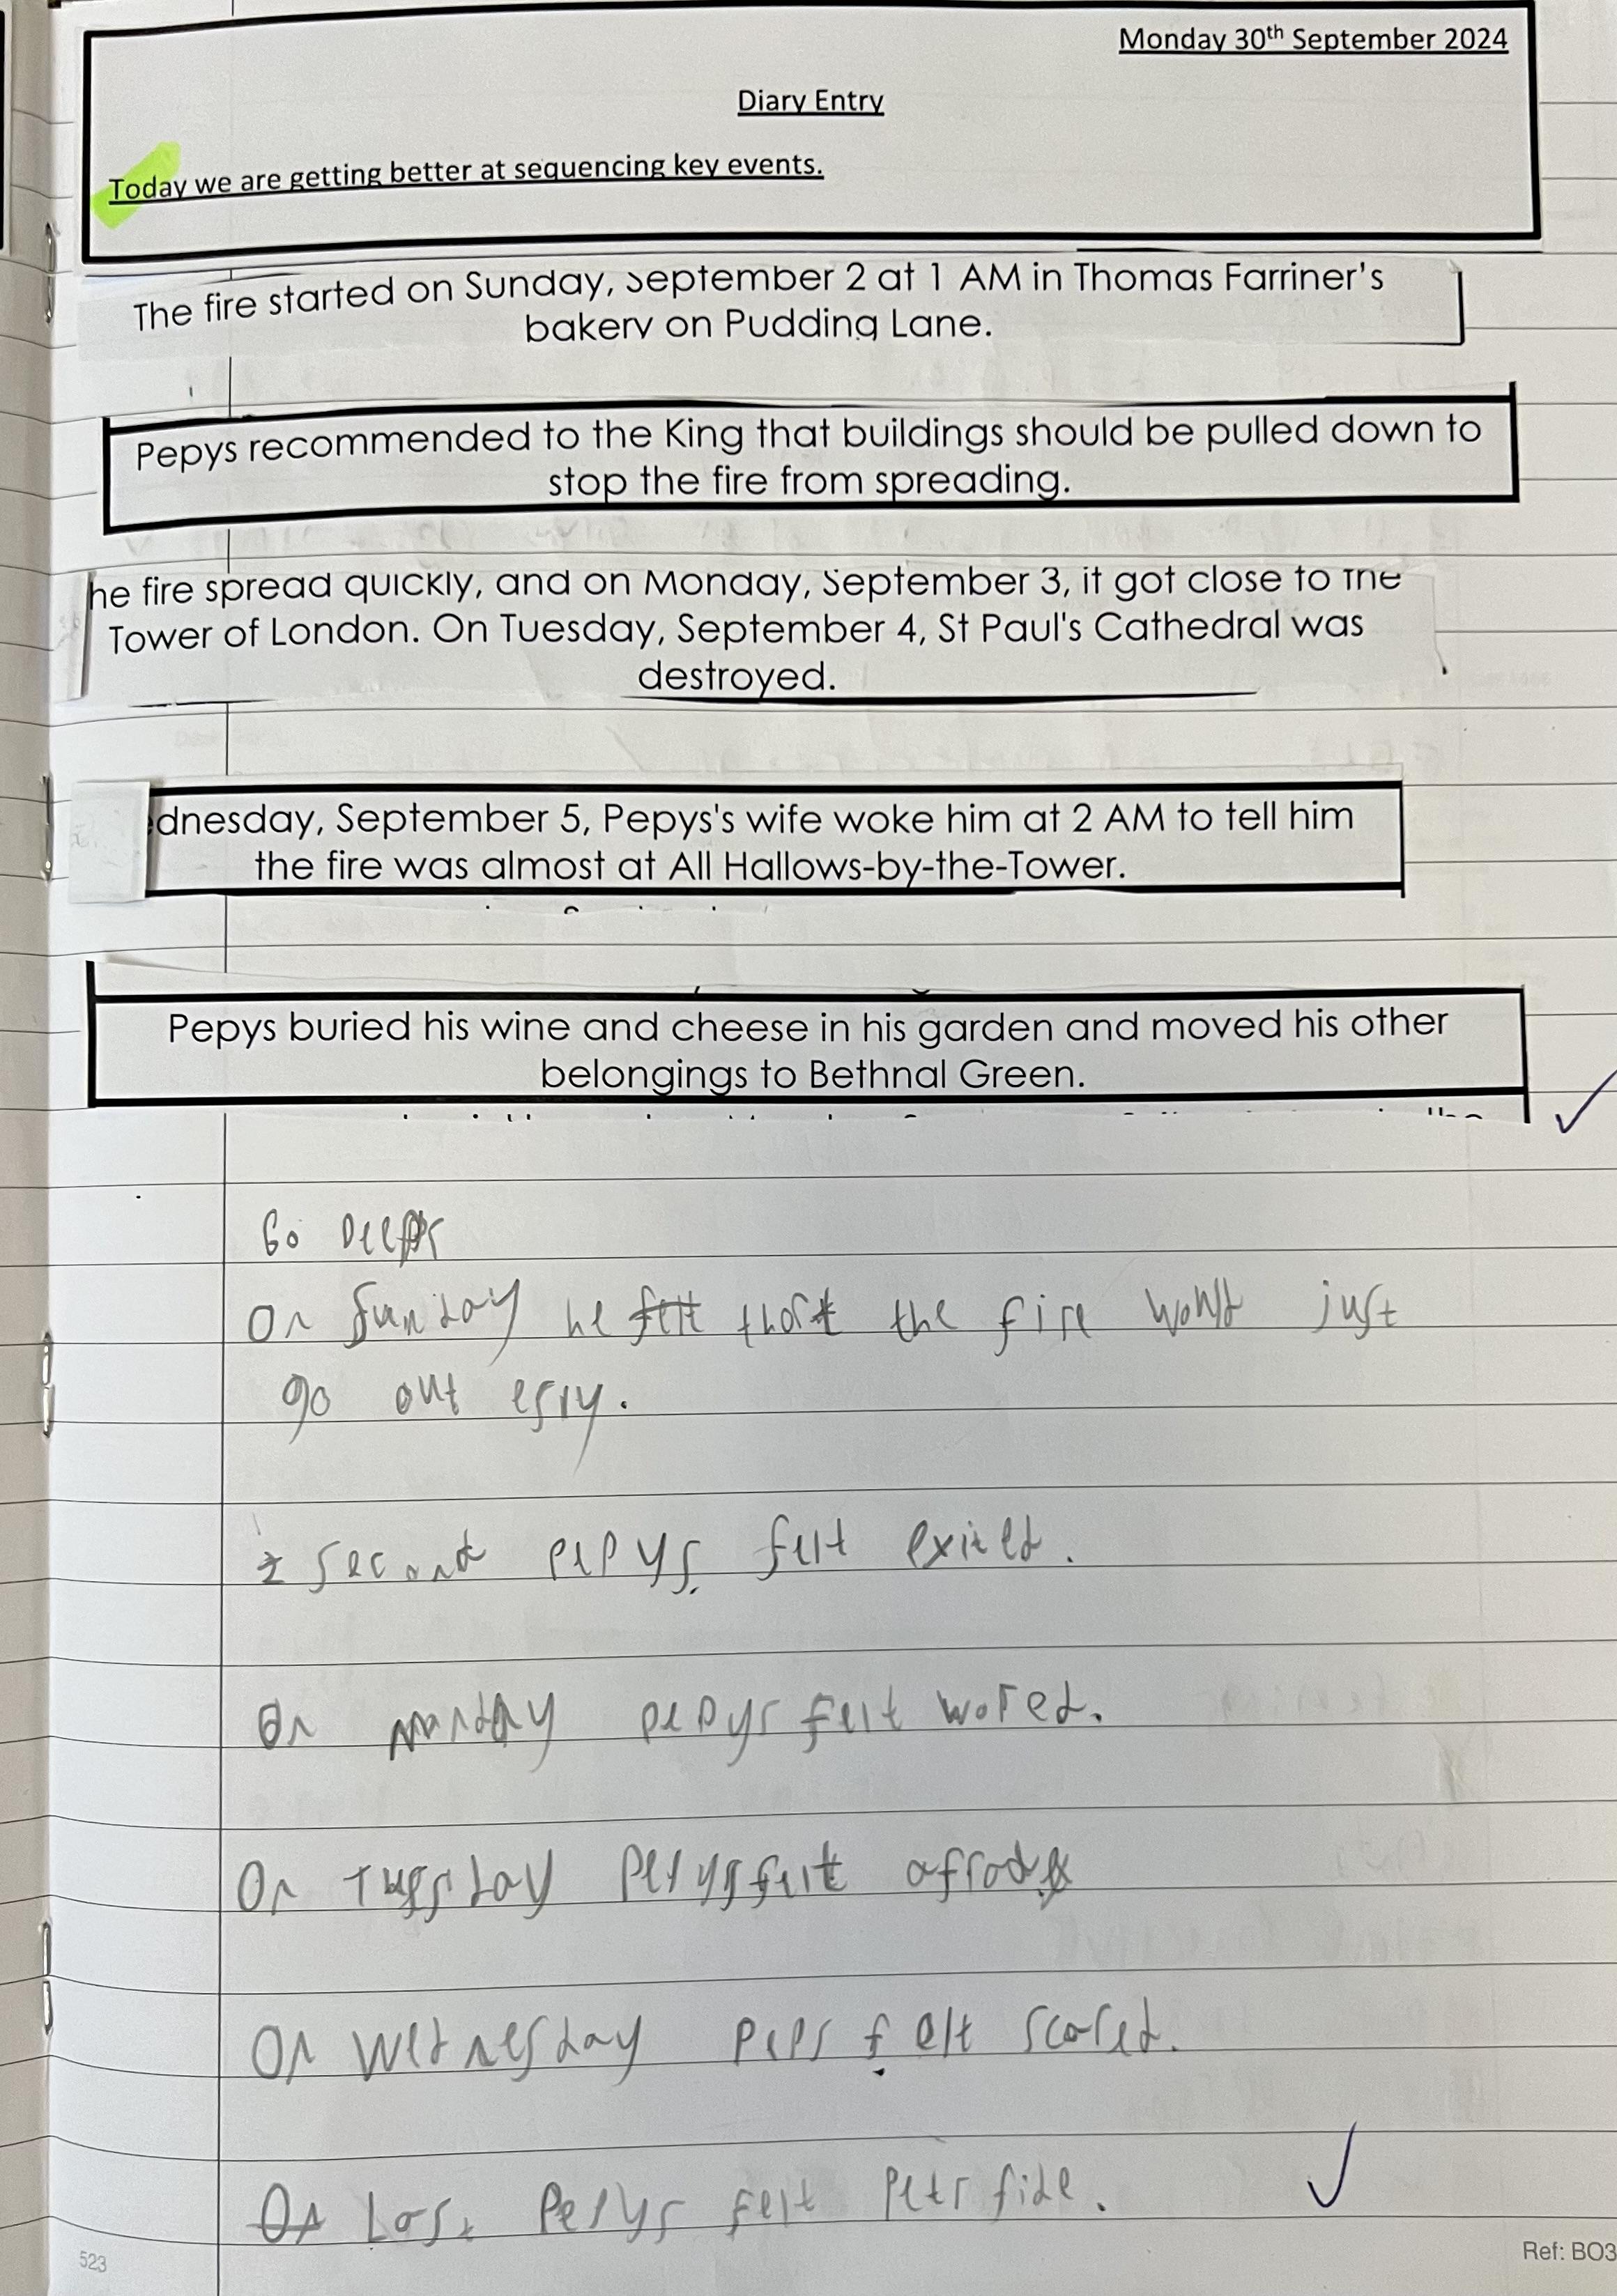 Monday 30th September 2024
Diary Entry
Today we are getting better at sequencing key events.
The fire started on Sunday, September 2 at 1 AM in Thomas Farriner's
bakery on Pudding Lane.
Pepys recommended to the King that buildings should be pulled down to
stop the fire from spreading.
he fire spread quickly, and on Monday, September 3, it got close to the
Tower of London. On Tuesday, September 4, St Paul's Cathedral was
destroyed.
dnesday, September 5, Pepys's wife woke him at 2 AM to tell him
the fire was almost at All Hallows-by-the-Tower.
Pepys buried his wine and cheese in his garden and moved his other
belongings to Bethnal Green.
Go Deepr
On Sunday he felt thort the fire would just
go out esry.
second pepys felt exited.
On monday pepys felt wored.
On Tuesday Pepys felt afrod
On Wednesday Peps felt scared.
On Last Pepys felt Petrfide.
523
Ref: BO3